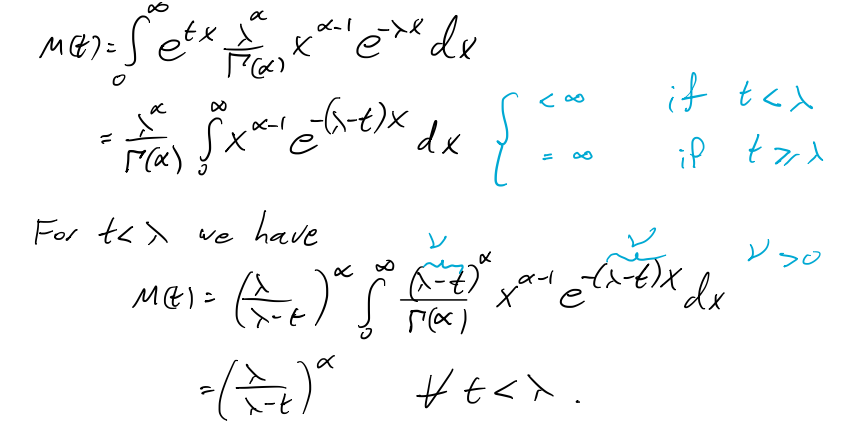 M(t) = ∫₀^∞ e^{tx} \frac{λ^α}{Γ(α)} x^{α-1} e^{-λx} dx
= \frac{λ^α}{Γ(α)} ∫₀^∞ x^{α-1} e^{-(λ-t)x} dx { < ∞ if t < λ
= ∞ if t ⩾ λ
For t < λ we have
M(t) = (\frac{λ}{λ-t})^α ∫₀^∞ \frac{\overbrace{(λ-t)}^{ν}{}^α}{Γ(α)} x^{α-1} e^{-\overbrace{(λ-t)}^{ν}x} dx ν > 0
= (\frac{λ}{λ-t})^α ∀ t < λ .